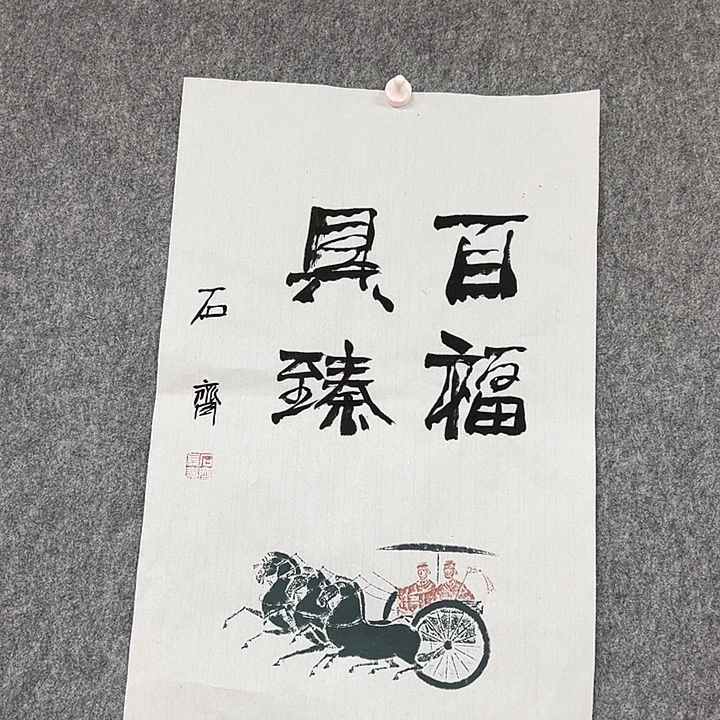 百福
具臻
石齊